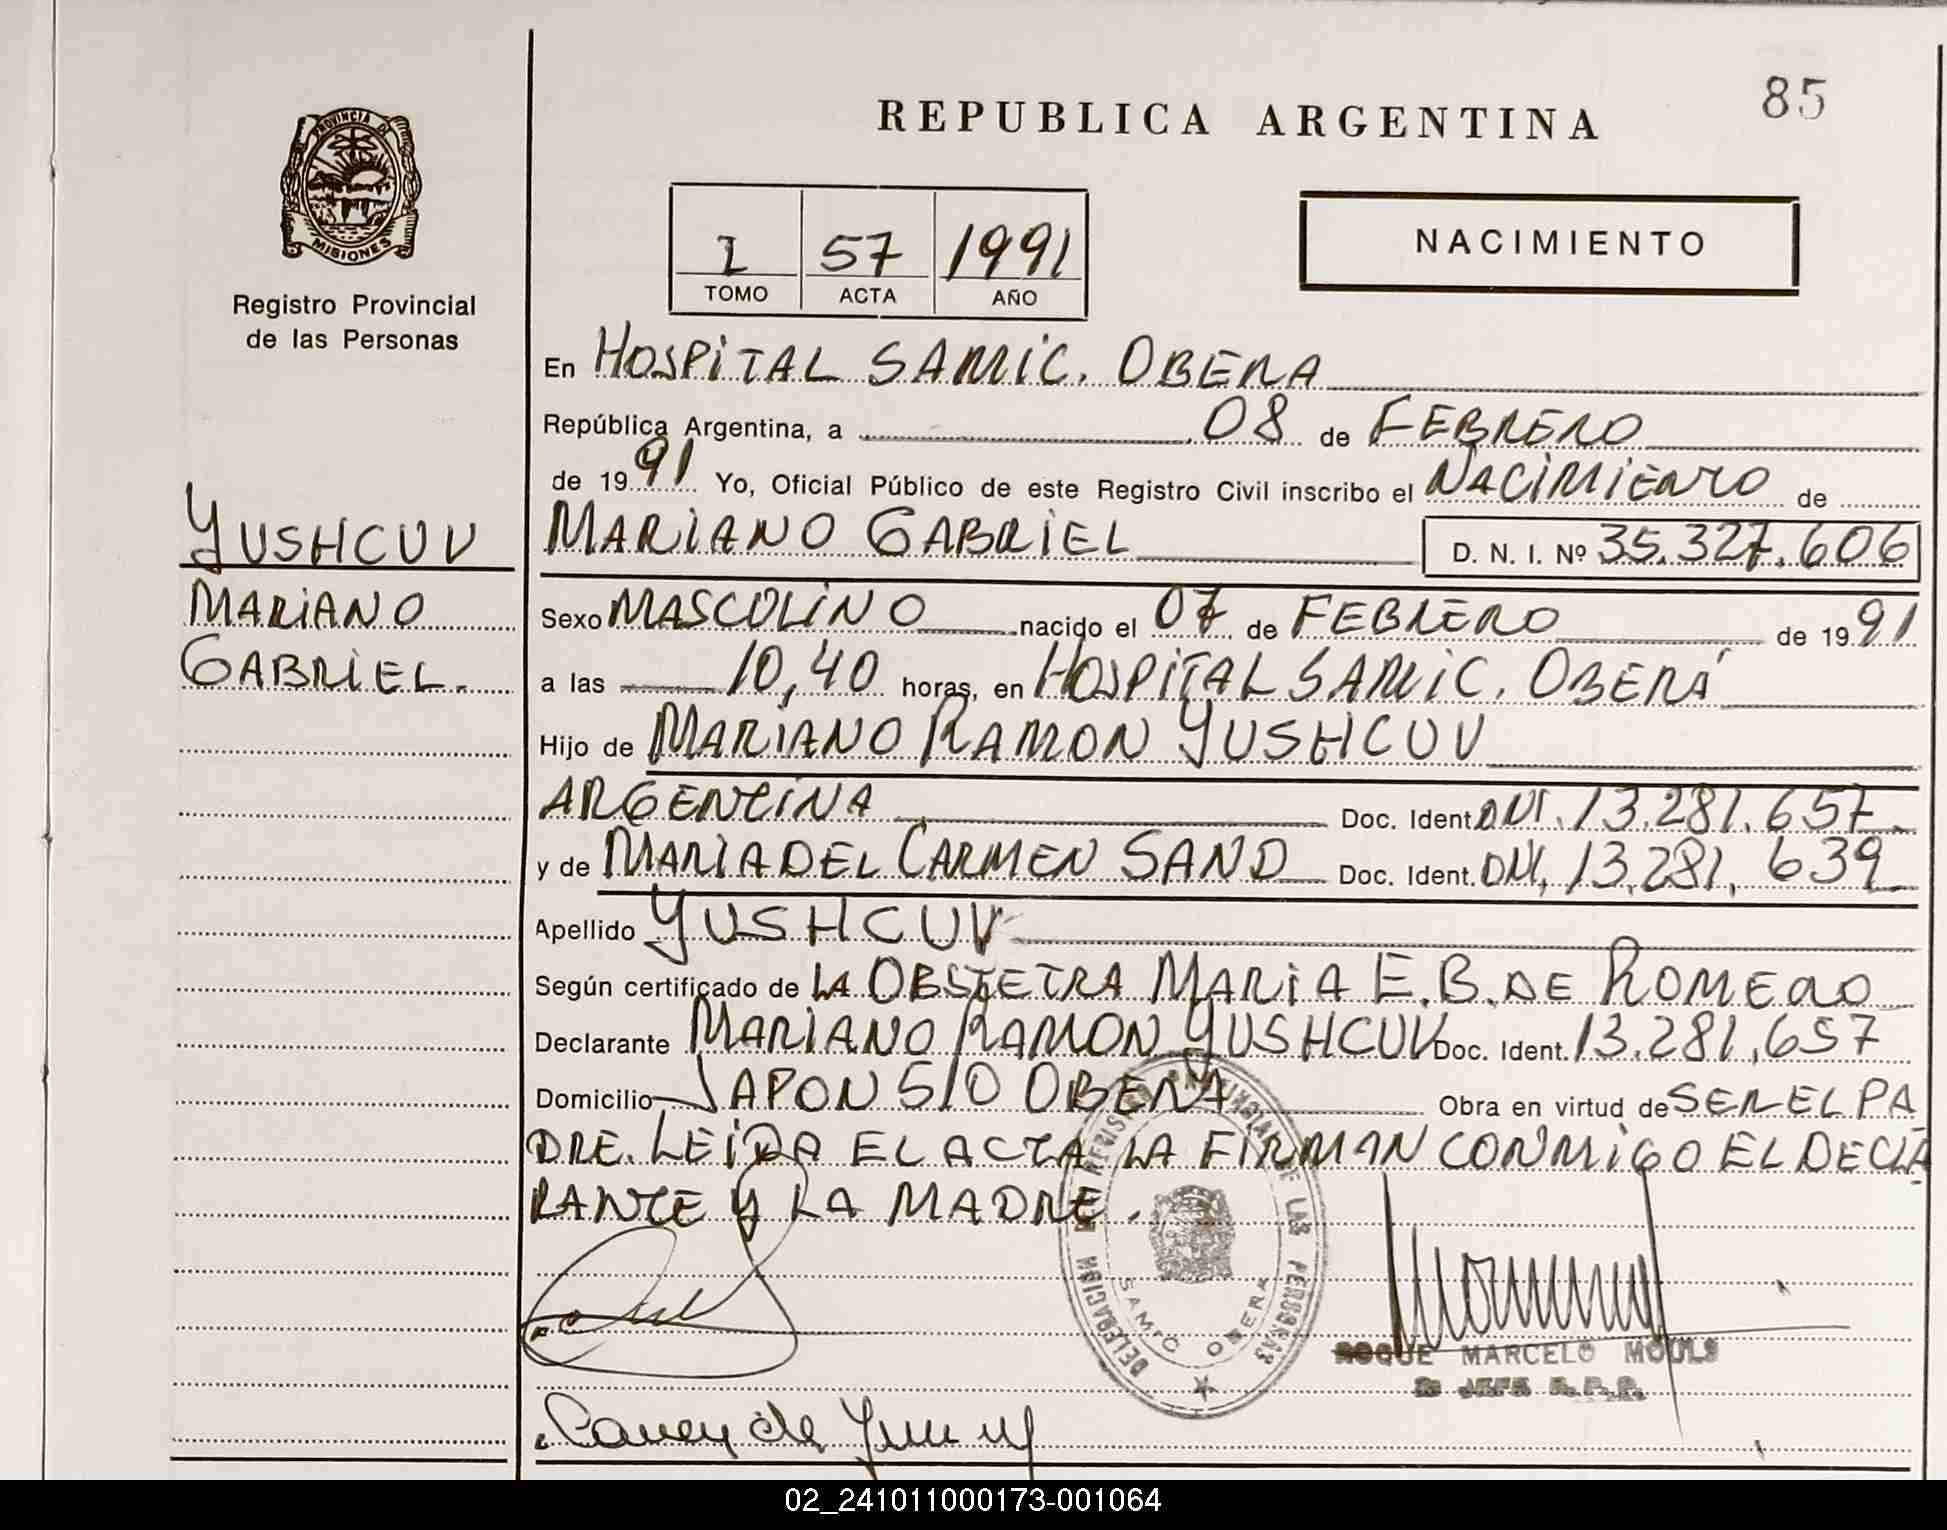 85
REPUBLICA ARGENTINA
PROVINCIA DE
MISIONES
Registro Provincial
de las Personas
I 57 1991
TOMO ACTA AÑO
NACIMIENTO
En HOSPITAL SAMIC. OBERA
República Argentina, a 08 de FEBRERO
de 1991 Yo, Oficial Público de este Registro Civil inscribo el NACIMIENTO de
YUSHCUV
MARIANO
GABRIEL.
MARIANO GABRIEL D. N. I. Nº 35.327.606
Sexo MASCULINO nacido el 07 de FEBRERO de 1991
a las 10,40 horas, en HOSPITAL SAMIC. OBERÁ
Hijo de MARIANO RAMON YUSHCUV
ARGENTINA Doc. Ident. DNI. 13.281.657
y de MARIA DEL CARMEN SAND Doc. Ident. DNI. 13.281.639
Apellido YUSHCUV
Según certificado de LA OBSTETRA MARIA E.B. DE ROMERO
Declarante MARIANO RAMON YUSHCUV Doc. Ident. 13.281.657
Domicilio JAPON 510 OBERA Obra en virtud de SER EL PA
DRE. LEIDA EL ACTA LA FIRMAN CONMIGO EL DECLA
RANTE Y LA MADRE.
DELEGACION DEL REGISTRO PROVINCIAL DE LAS PERSONAS
SAMIC OBERA
ROQUE MARCELO MOULS
JEFE R.P.P.
02_241011000173-001064